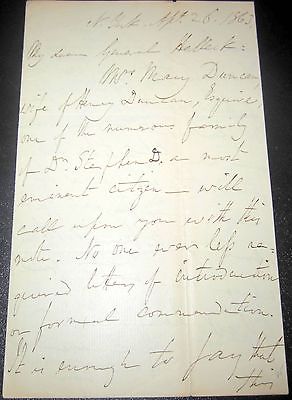 N. York Apl 26. 1863
My dear General Halleck:
Mrs Mary Duncan,
wife of Henry Duncan, Esquire,
one of the numerous family
of Dr. Stephen D. a most
eminent citizen — will
call upon you with this
note. No one ever less re-
quired letters of introduction
or formal commendation.
It is enough to say that
this